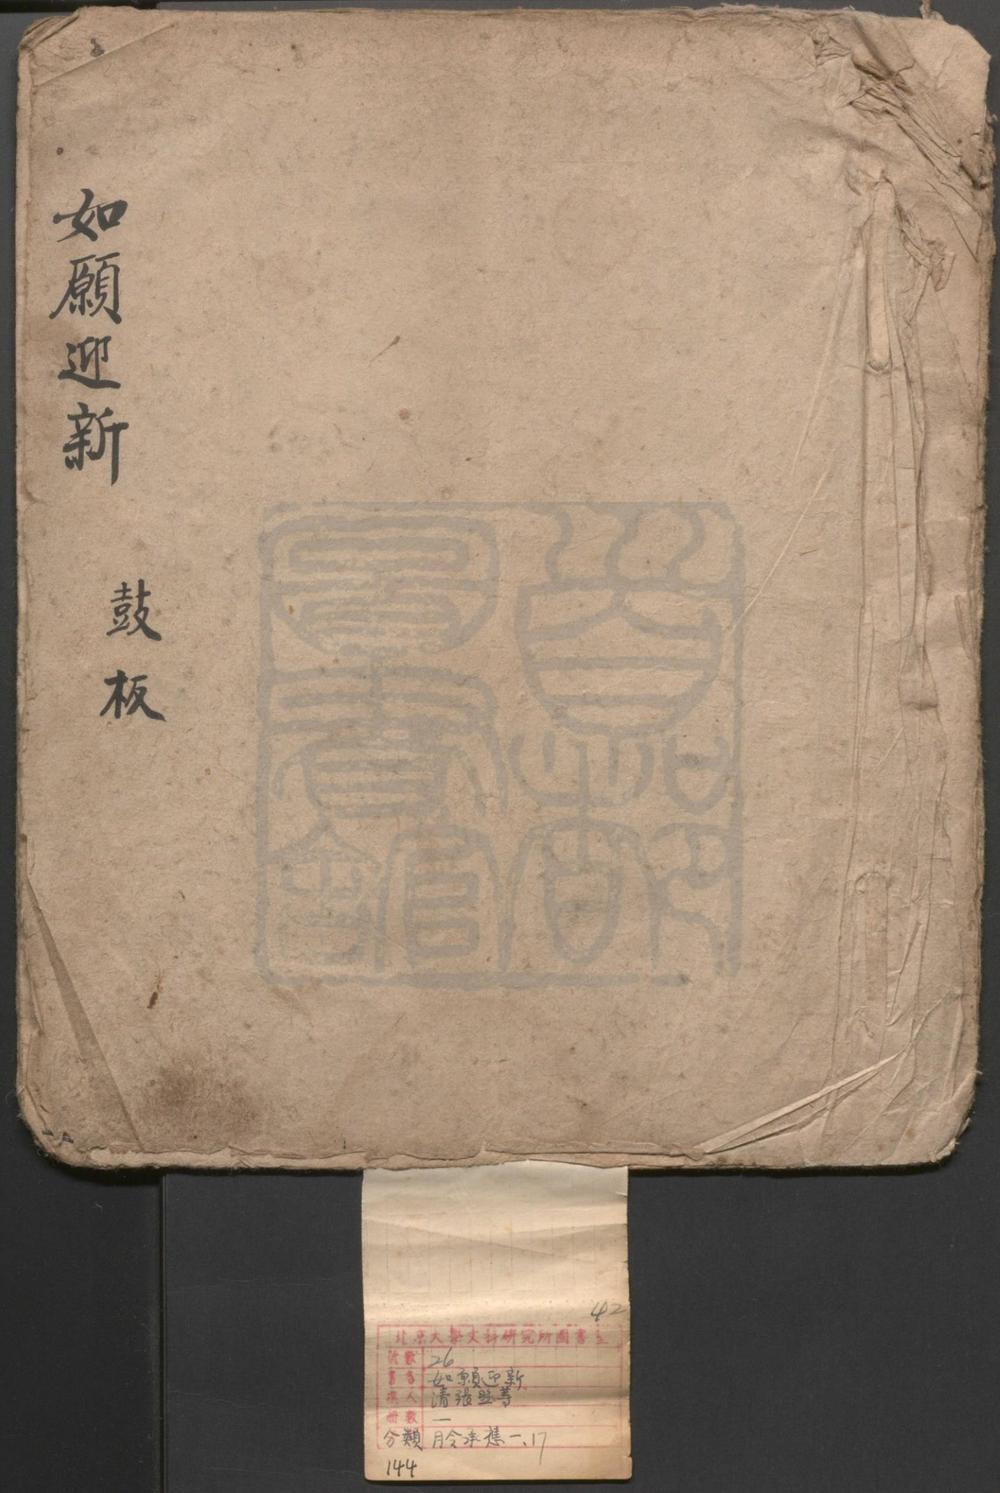 如願迎新
鼓板
42
北京大學文科研究所圖書室
號數 26
書名 如願迎新
撰人 清張照等
冊數 一
分類 月令承應一、17
144